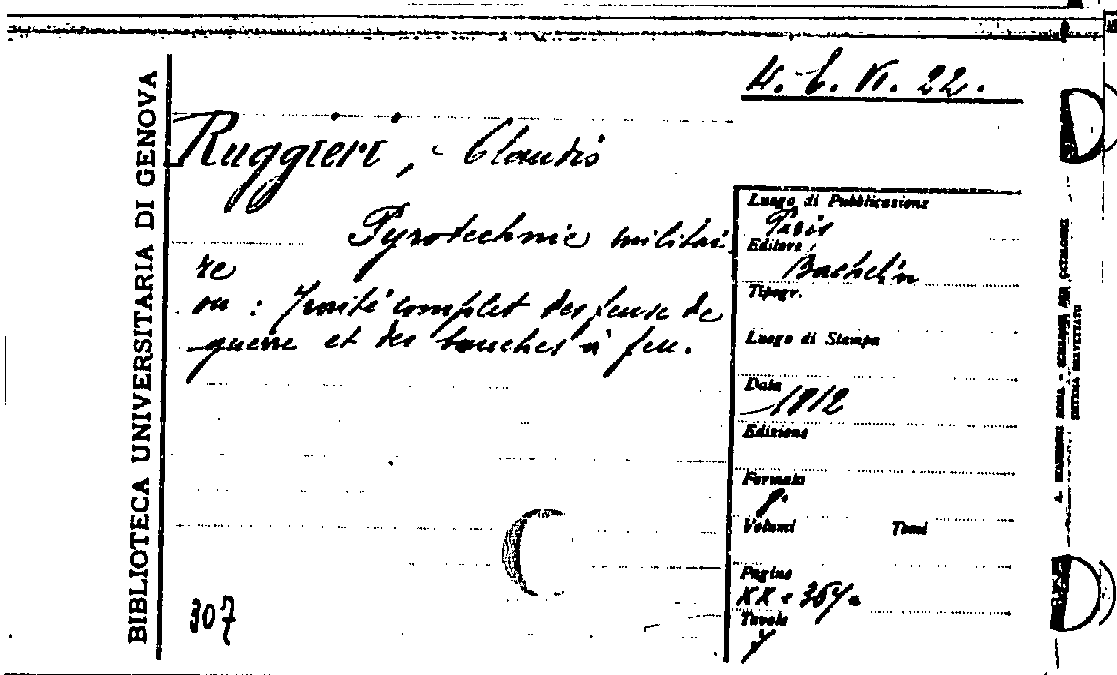 BIBLIOTECA UNIVERSITARIA DI GENOVA
4. C. VI. 22.
Ruggieri, Claudio
Pyrotechnie militai
re
ou : Traité complet des feuse de
guerre et des bouches à feu.
307
Luogo di Pubblicazione
Paris
Editore
Bachelin
Tipogr.
Luogo di Stampa
Data
1812
Edizione
Formato
8°
Volumi Tomi
Pagine
XX
Tavole